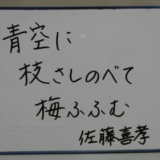 青空に
枝さしのべて
梅ふふむ
佐藤喜孝